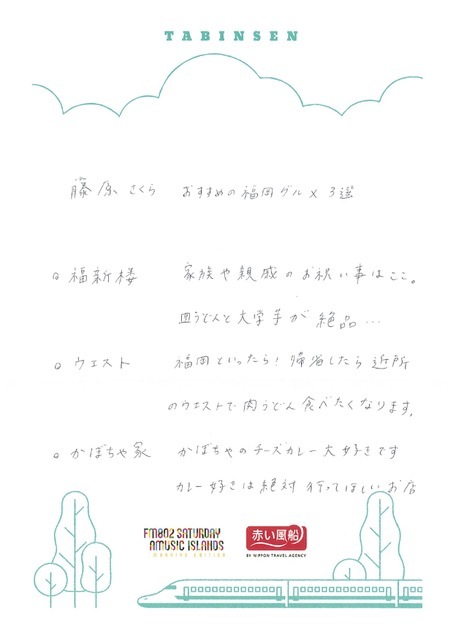 TABINSEN
藤原さくら おすすめの福岡グルメ3選
福新楼 家族や親戚のお祝い事はここ。
皿うどんと大学芋が絶品…
ウエスト 福岡といったら!帰省したら近所
のウエストで肉うどん食べたくなります。
かぼちゃ家 かぼちゃのチーズカレー大好きです
カレー好きは絶対行ってほしいお店
FM802 SATURDAY
AMUSIC ISLANDS
MORNING EDITION
赤い風船
BY NIPPON TRAVEL AGENCY